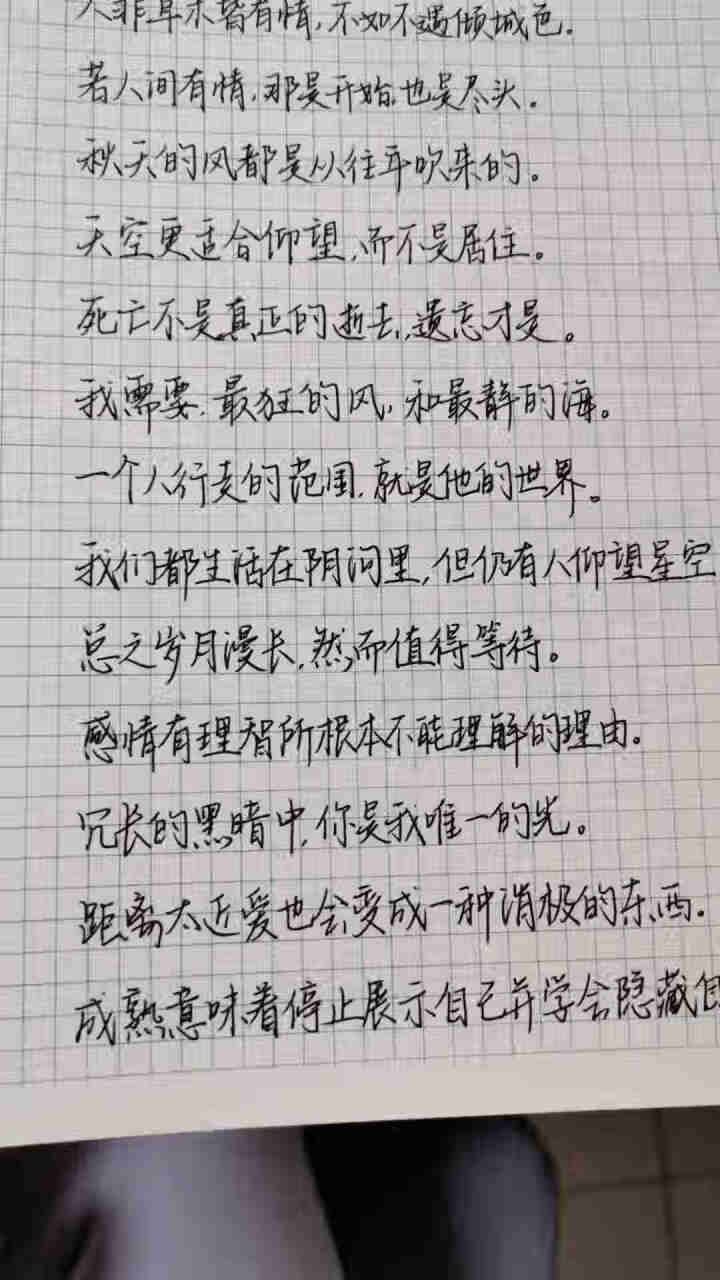 人非草木皆有情,不如不遇倾城色.
若人间有情,那是开始,也是尽头.
秋天的风都是从往年吹来的。
天空更适合仰望,而不是居住。
死亡不是真正的逝去,遗忘才是。
我需要,最狂的风,和最静的海。
一个人行走的范围,就是他的世界。
我们都生活在阴沟里,但仍有人仰望星空
总之岁月漫长,然而值得等待。
感情有理智所根本不能理解的理由.
冗长的黑暗中,你是我唯一的光。
距离太近爱也会变成一种消极的东西.
成熟意味着停止展示自己并学会隐藏